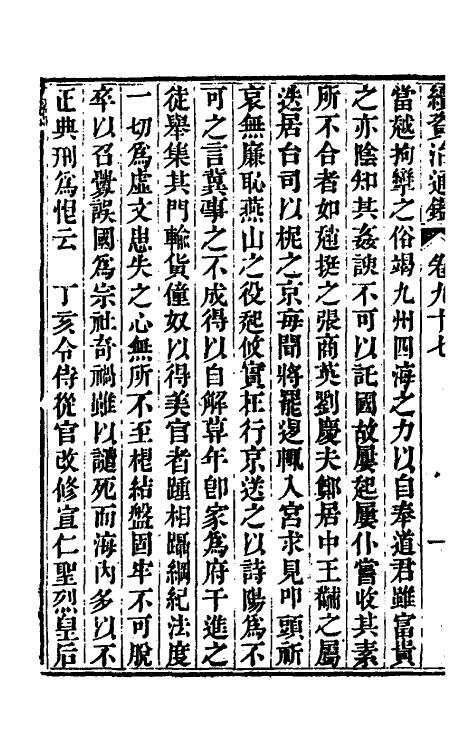 續資治通鑑 卷九十七 一
當越拘攣之俗竭九州四海之力以自奉道君雖富貴
之亦陰知其姦諛不可以託國故屢起屢仆嘗收其素
所不合者如趙挺之張商英劉慶夫鄭居中王黼之屬
迭居台司以柅之京每聞將罷退輒入宮求見叩頭祈
哀無廉恥燕山之役起攸實枉行京送之以詩陽爲不
可之言冀事之不成得以自解暮年卽家爲府干進之
徒舉集其門輸貨僮奴以得美官者踵相躡綱紀法度
一切爲虛文患失之心無所不至根結盤固牢不可脫
卒以召釁誤國爲宗社奇禍雖以譴死而海內多以不
正典刑爲恨云 丁亥令侍從官改修宣仁聖烈皇后